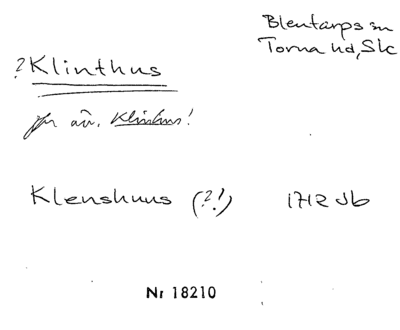 Blentarps sn
Torna hd, Sk
?Klinthus
jfr äv. Klinhus!
Klenshuus (?!) 1712 Jb
Nr 18210